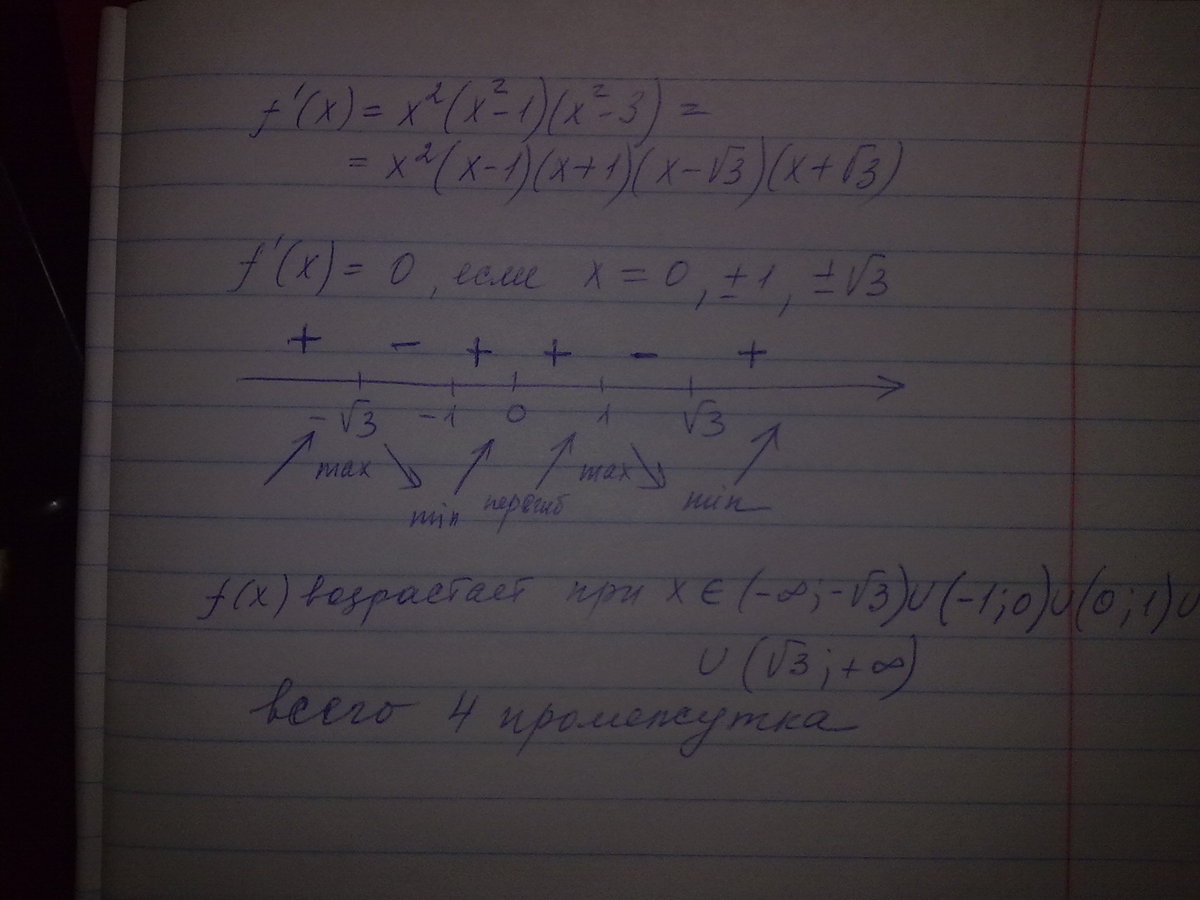 f'(x) = x²(x²-1)(x²-3) =
= x²(x-1)(x+1)(x-√3)(x+√3)
f'(x) = 0, если x = 0, ±1, ±√3
+ - + + - +
-√3 -1 0 1 √3
max max
min перегиб min
f(x) возрастает при x ∈ (-∞; -√3)∪(-1; 0)∪(0; 1)∪
∪ (√3; +∞)
всего 4 промежутка